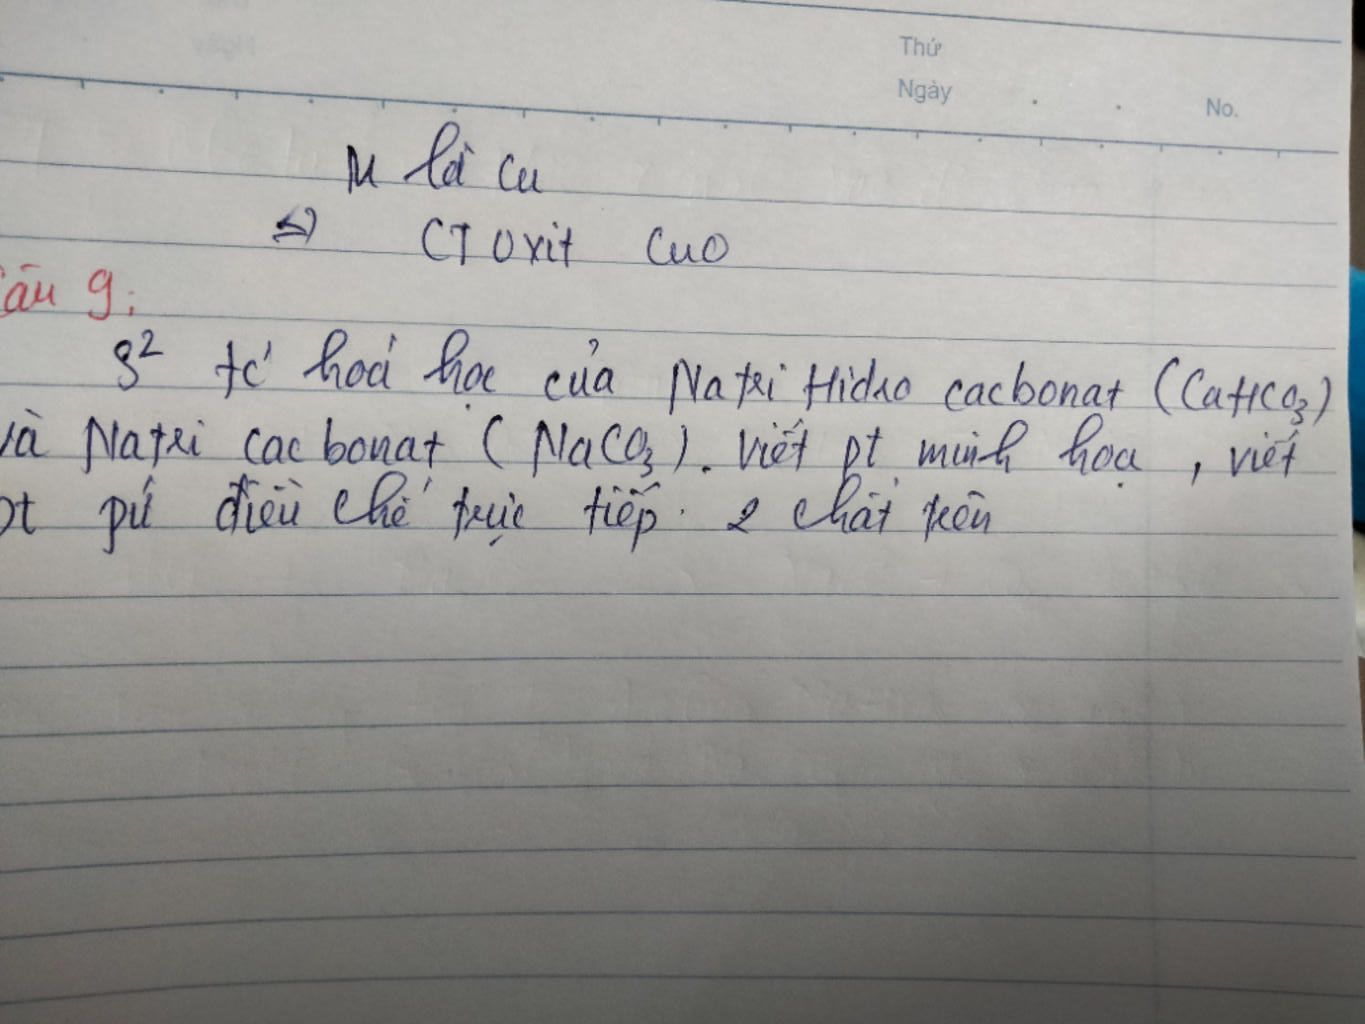 Thứ
Ngày
No.
M là Cu
=> CT oxit CuO
Câu 9:
S² tc' hoá học của Natri Hidro cacbonat (CaHCO₃)
và Natri cacbonat (NaCO₃). viết pt minh hoạ, viết
pt pứ điều chế trực tiếp. 2 chất trên